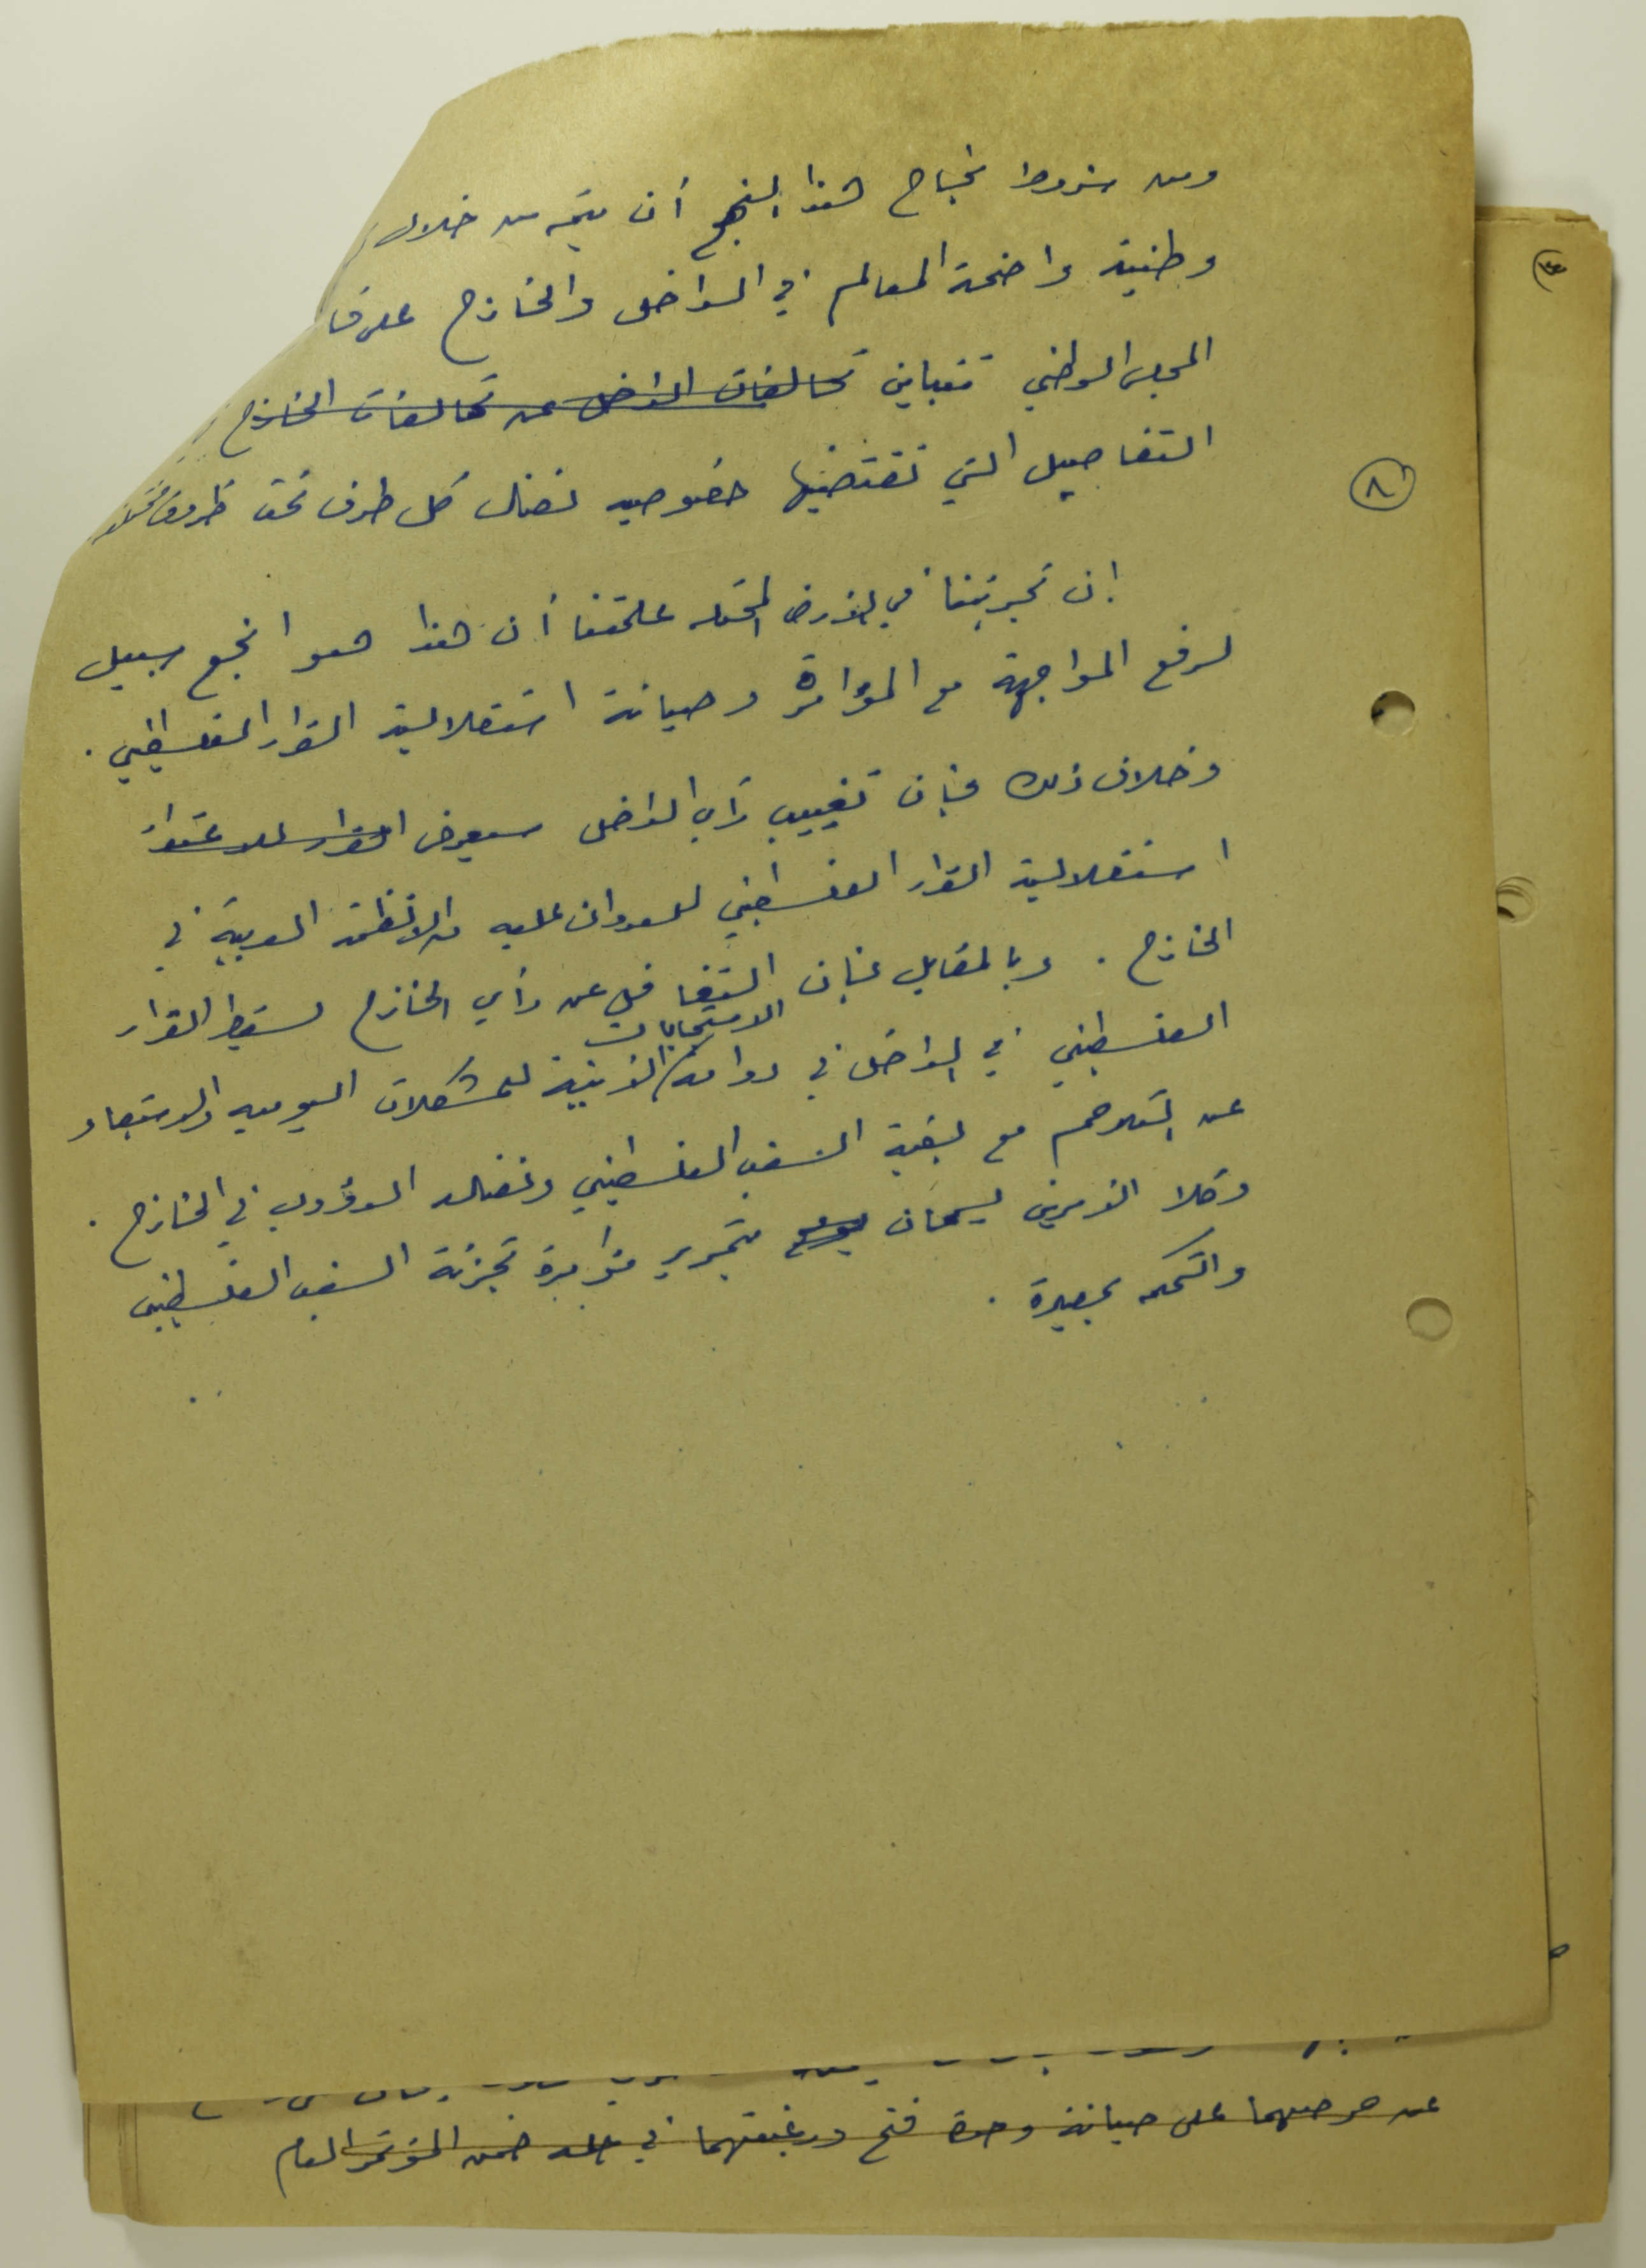 ومن شروط نجاح هذا النهج أن يتم من خلال
وطنية واضحة المعالم في الداخل والخارج
المجلس الوطني تتباين تحالفات الداخل عن تحالفات الخارج
التفاصيل التي تقتضيها خصوصيه نضال كل طرف تحت ظروف
٨
ان تجربتنا في الأرض المحتله علمتنا أن هذا هو انجع سبيل
لرفع المواجهة مع المؤامرة وصيانة استقلالية القرار الفلسطيني .
وخلاف ذلك فإن تغييب رأي الداخل سيعرض القرار
استقلالية القرار الفلسطيني للعدوان عليه من الانظمة العربية في
الخارج . وبالمقابل فإن التغافل عن رأي الخارج سيسقط القرار
الاستجابات
الفلسطيني في الداخل في دوامة الآنية للمشكلات اليوميه والابتعاد
عن التلاحم مع بقية الشعب الفلسطيني ونضاله الدؤوب في الخارج .
وكلا الأمرين يسمحان بتمرير مؤامرة تجزئة الشعب الفلسطيني
والتحكم بمصيره .
عن حرصهما على صيانة وحدة فتح ورغبتهما في حله ضمن المؤتمر العام